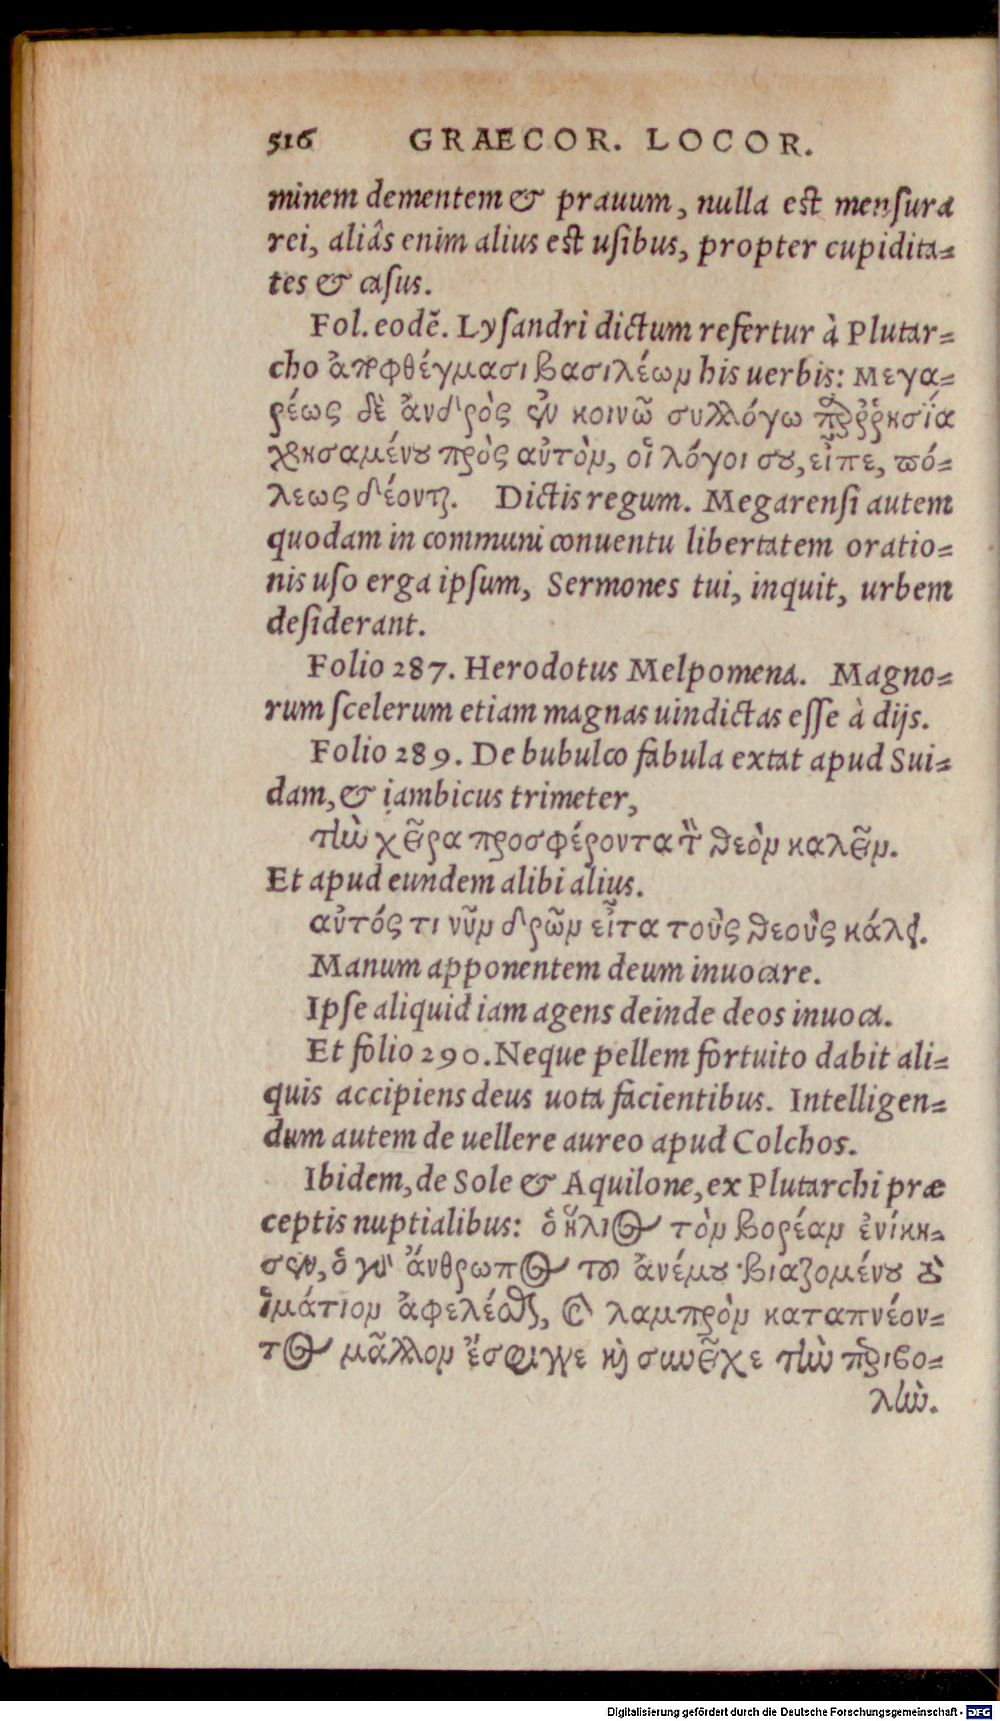 516 GRAECOR. LOCOR.
minem dementem & prauum, nulla est mensura
rei, aliâs enim alius est usibus, propter cupidita=
tes & casus.
Fol. eodẽ. Lysandri dictum refertur à Plutar=
cho ἀποφθέγμασι βασιλέωμ his uerbis: Μεγα=
ρέως δὲ ἀνδρὸς ἐν κοινῶ συλλόγω παρρησία
χρησαμένου πρὸς αὐτὸμ, οἱ λόγοι σου, εἶπε, πό=
λεως δέονται. Dictis regum. Megarensi autem
quodam in communi conuentu libertatem oratio=
nis uso erga ipsum, Sermones tui, inquit, urbem
desiderant.
Folio 287. Herodotus Melpomena. Magno=
rum scelerum etiam magnas uindictas esse à dijs.
Folio 289. De bubulco fabula extat apud Sui=
dam, & iambicus trimeter,
τὴν χεῖρα προσφέροντα τὸν θεὸμ καλεῖμ.
Et apud eundem alibi alius.
αὐτός τι νῦμ δρῶμ εἶτα τοὺς θεοὺς κάλει.
Manum apponentem deum inuocare.
Ipse aliquid iam agens deinde deos inuoca.
Et folio 290. Neque pellem fortuito dabit ali=
quis accipiens deus uota facientibus. Intelligen=
dum autem de uellere aureo apud Colchos.
Ibidem, de Sole & Aquilone, ex Plutarchi præ
ceptis nuptialibus: ὁ ἥλιος τὸμ βορέαμ ἐνίκη=
σεν, ὁ γὰρ ἄνθρωπος τοῦ ἀνέμου βιαζομένου τὸ
ἱμάτιομ ἀφελέσθαι, καὶ λαμπρὸμ καταπνέον=
τος μᾶλλομ ἔσφιγγε καὶ συνεῖχε τὴν περιβο=
λὴν.
Digitalisierung gefördert durch die Deutsche Forschungsgemeinschaft - DFG